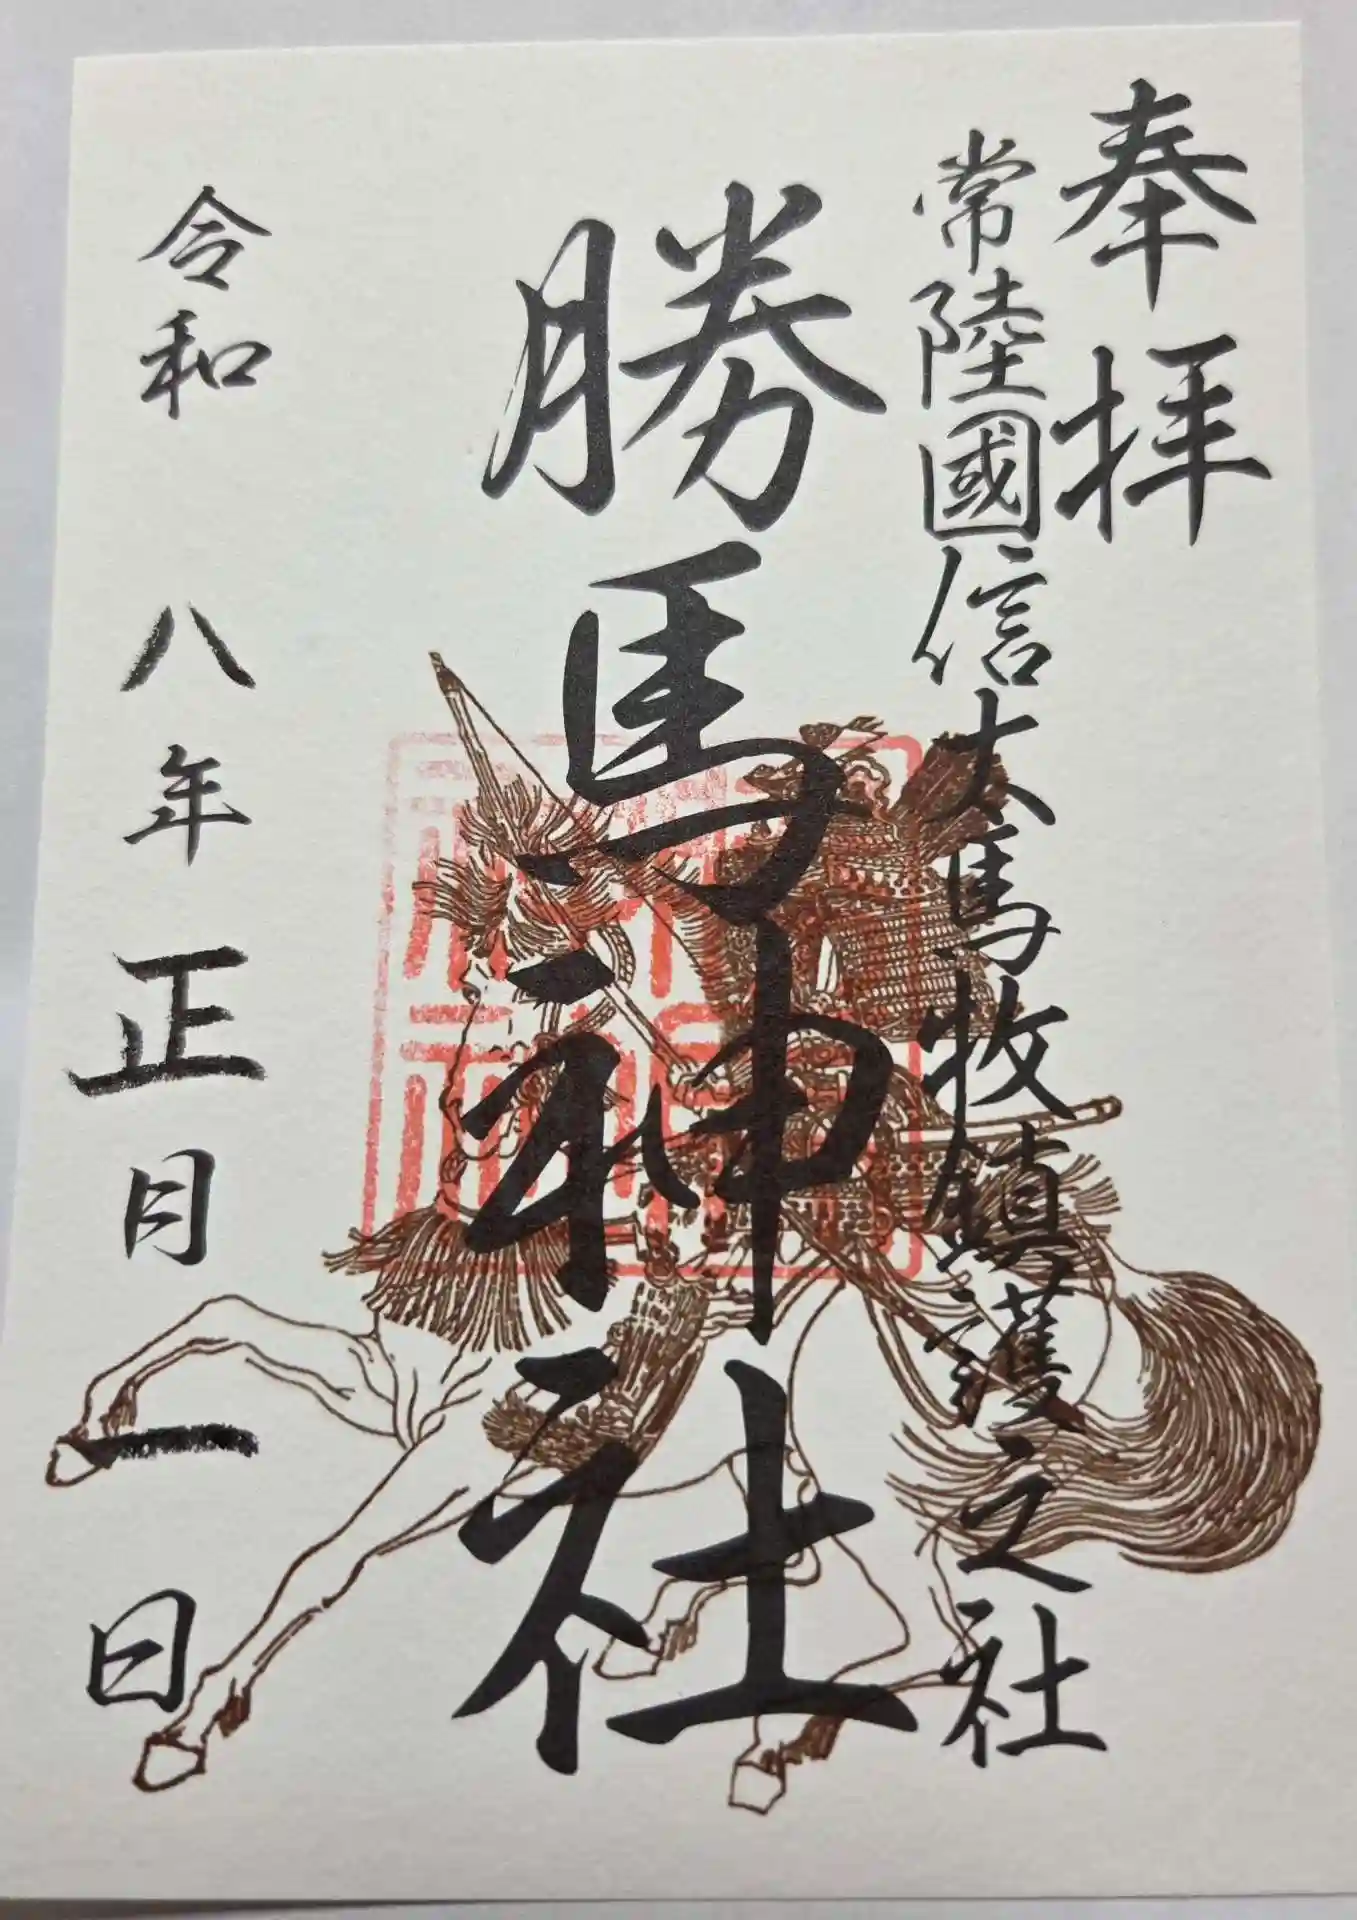 奉拝
常陸國信太馬牧鎮護之社
勝馬神社
令和八年正月一日